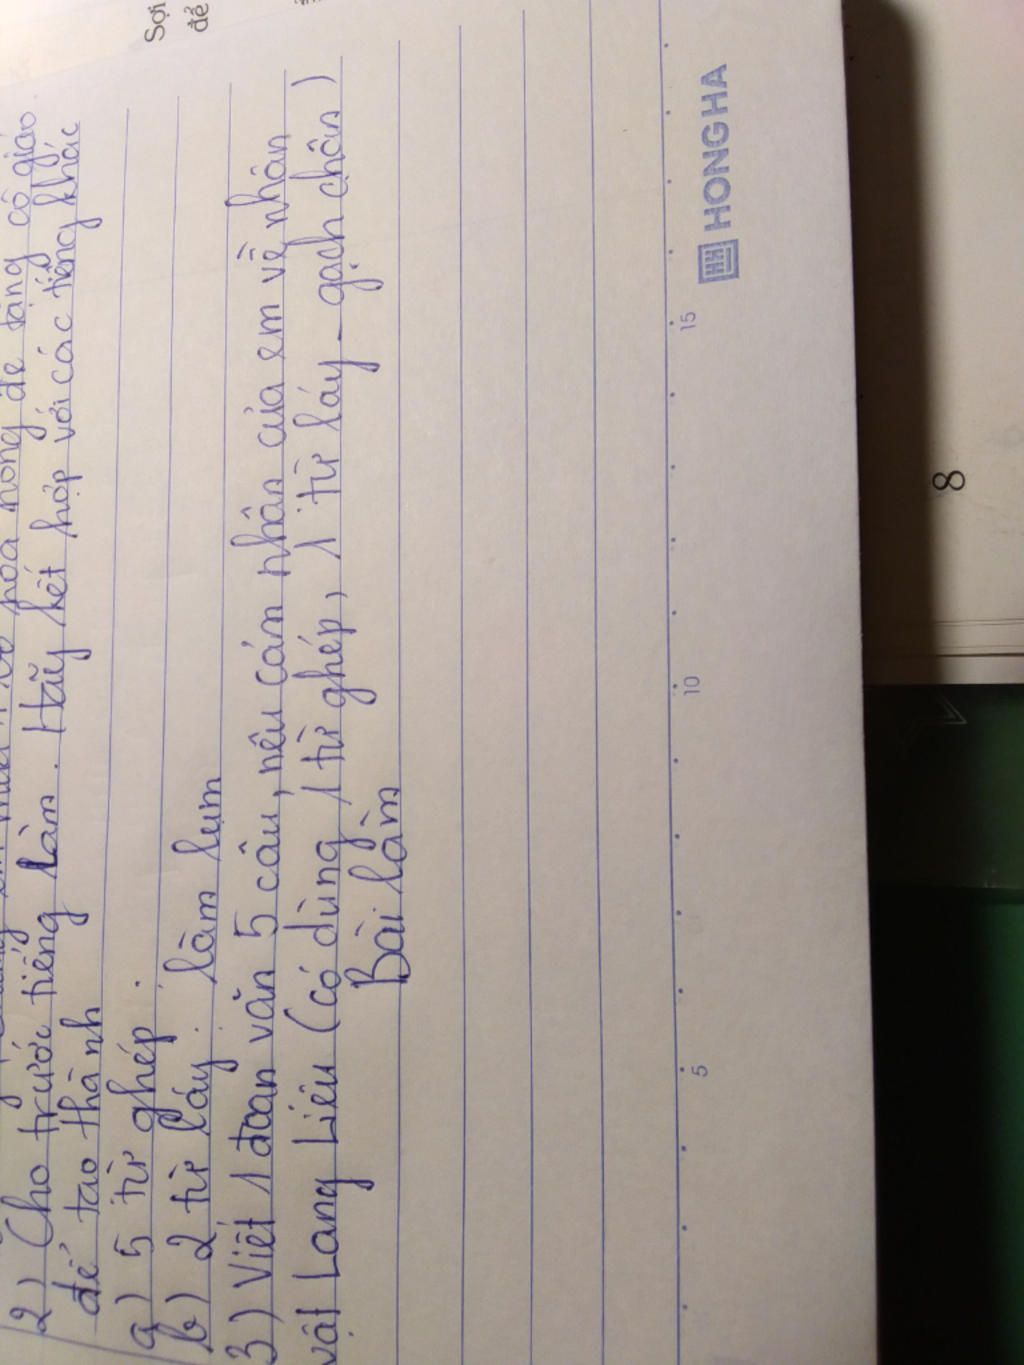 hoa hồng để tặng cô giáo
2) Cho trước tiếng làm. Hãy kết hợp với các tiếng khác
để tạo thành
a) 5 từ ghép.
b) 2 từ láy. làm lụm
3) Viết 1 đoạn văn 5 câu, nêu cảm nhận của em về nhân
vật Lang Liêu (có dùng 1 từ ghép, 1 từ láy - gạch chân)
Bài làm
5 10 15
HH HONG HA
Sợi
để
8